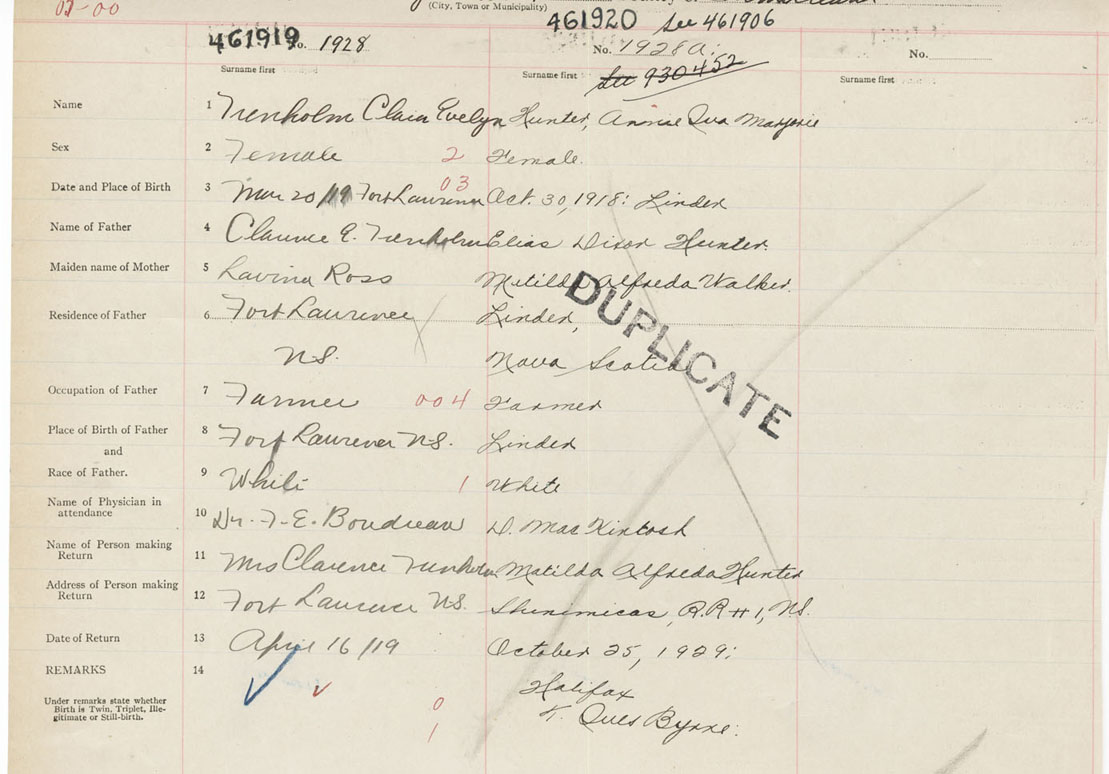 03-00
(City, Town or Municipality)
461919 No. 1928
461920 See 461906
No. 1928a.
See 930452
No.
Surname first
Surname first
Surname first
Name 1 Trenholm Clair Evelyn Hunter, Annie Iva Marjorie
Sex 2 Female 2 Female.
03
Date and Place of Birth 3 Mar 20/19 Fort Laurence Oct. 30, 1918: Linden
Name of Father 4 Clarence E. Trenholm Elias Dixon Hunter.
Maiden name of Mother 5 Lavina Ross Matilda Alfreda Walker.
Residence of Father 6 Fort Laurence Linden,
N.S. Nova Scotia
DUPLICATE
Occupation of Father 7 Farmer 004 Farmer
Place of Birth of Father 8 Fort Laurence N.S. Linden
and
Race of Father. 9 White 1 White
Name of Physician in
attendance 10 Dr. F. E. Boudreau D. MacKintosh
Name of Person making
Return 11 Mrs Clarence Trenholm Matilda Alfreda Hunter
Address of Person making
Return 12 Fort Laurence N.S. Shinimicas, R.R #1, N.S.
Date of Return 13 April 16/19 October 25, 1929:
REMARKS 14
Halifax
Under remarks state whether
Birth is Twin, Triplet, Ille-
gitimate or Still-birth.
0
Byrne.
1